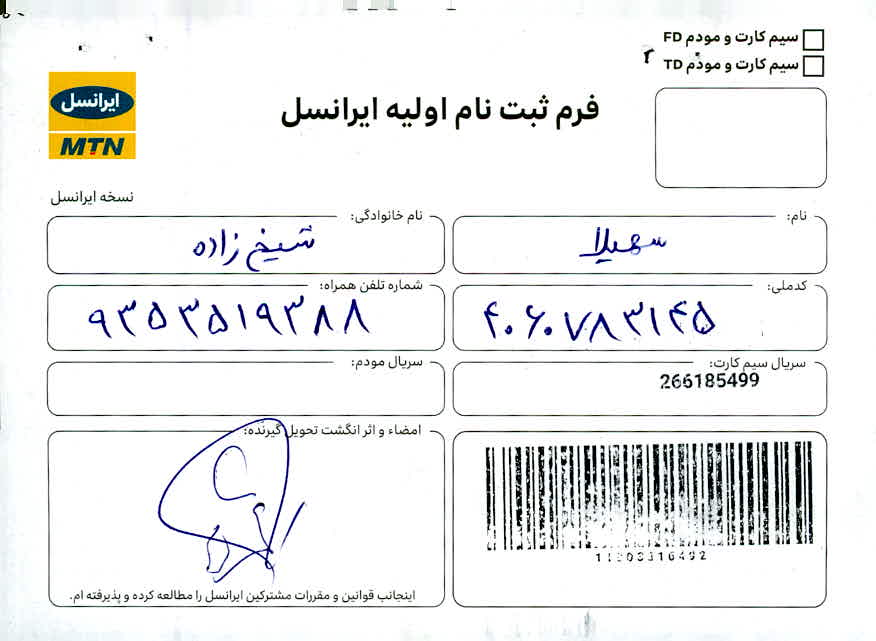 سیم کارت و مودم FD
سیم کارت و مودم TD
ایرانسل
MTN
فرم ثبت نام اولیه ایرانسل
نسخه ایرانسل
نام:
سهیلا
نام خانوادگی:
شیخ زاده
کدملی:
۴۰۶۰۷۸۳۱۴۵
شماره تلفن همراه:
۹۳۵۳۵۱۹۳۸۸
سریال سیم کارت:
266185499
سریال مودم:
امضاء و اثر انگشت تحویل گیرنده:
اینجانب قوانین و مقررات مشترکین ایرانسل را مطالعه کرده و پذیرفته ام.